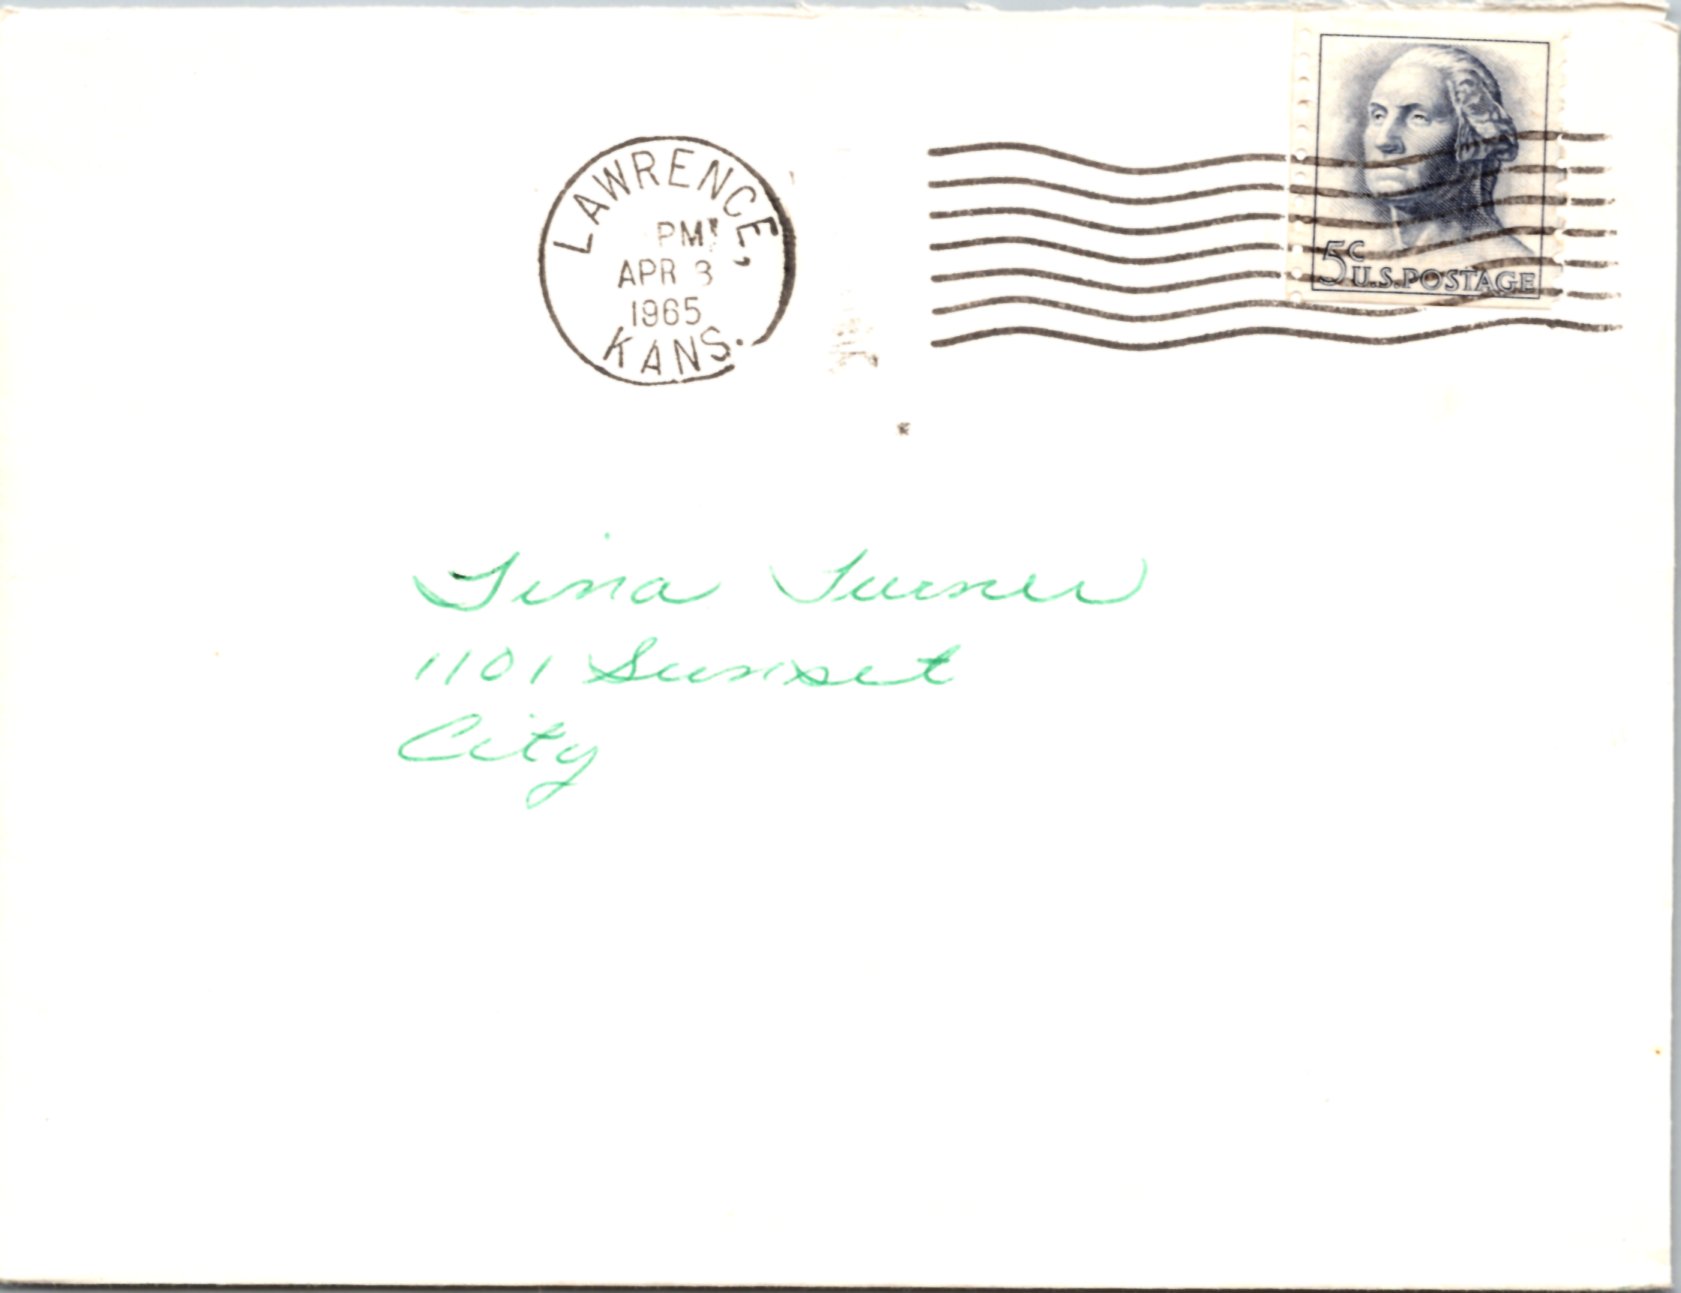 LAWRENCE,
PM
APR 3
1965
KANS.
5c
U.S. POSTAGE
Tina Turner
1101 Sunset
City